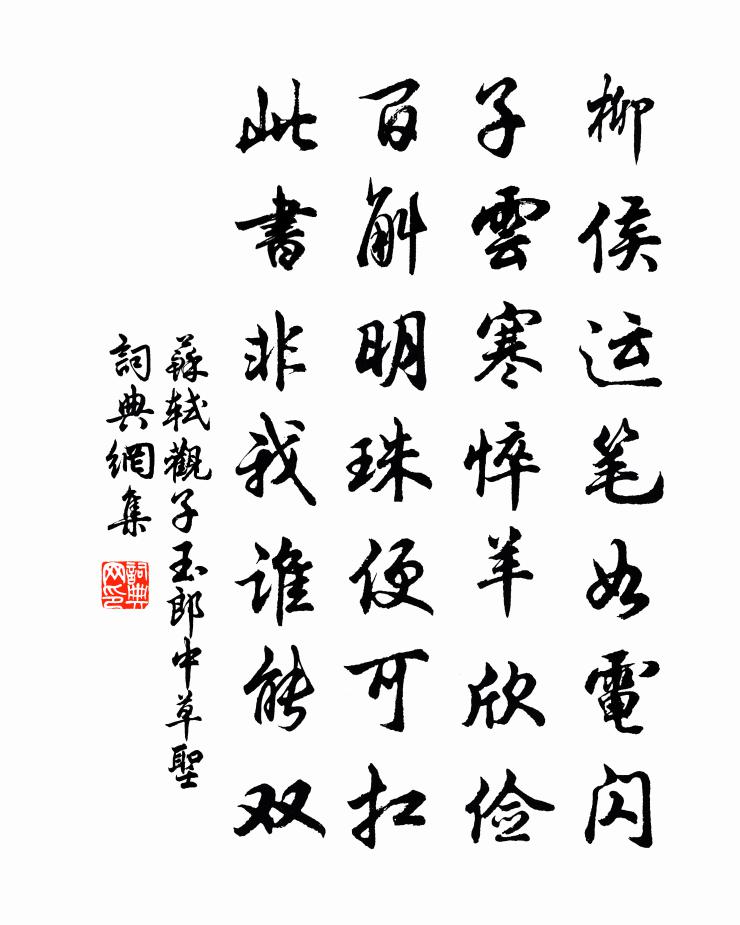 柳侯运笔如電闪
子雲寒悴羊欣俭
百斛明珠便可扛
此書非我谁能双
蘇軾觀子玉郎中草聖
詞典網集
詞典网印